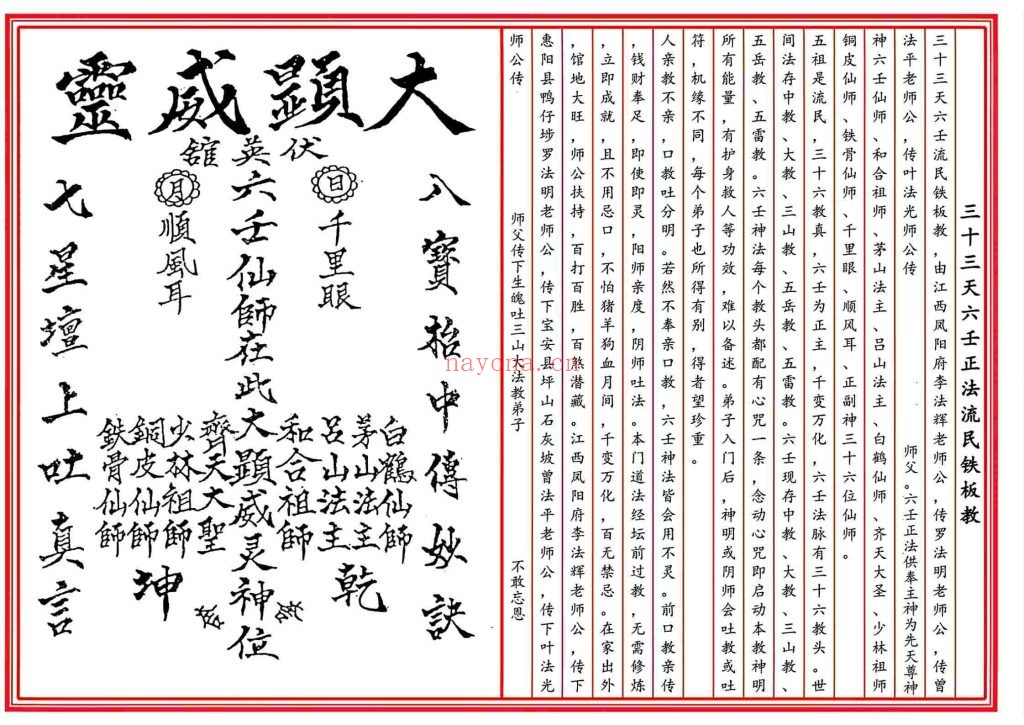 三十三天六壬正法流民铁板教
三十三天六壬流民铁板教，由江西凤阳府李法辉老师公，传罗法明老师公，传曾
法平老师公，传叶法光师公传　师父。六壬正法供奉主神为先天尊神
神六壬仙师、和合祖师、茅山法主、吕山法主、白鹤仙师、齐天大圣、少林祖师
铜皮仙师、铁骨仙师、千里眼、顺风耳、正副神三十六位仙师。
五祖是流民，三十六教真，六壬为正主，千变万化，六壬法脉有三十六教头。世
间法存中教、大教、三山教、五岳教、五雷教。六壬现存中教、大教、三山教、
五岳教、五雷教。六壬神法每个教头都配有心咒一条，念动心咒即启动本教神明
所有能量，有护身救人等功效，难以备述。弟子入门后，神明或阴师会吐教或吐
符，机缘不同，每个弟子也所得有别，得者望珍重。
人亲教不亲，口教吐分明。若然不奉亲口教，六壬神法皆会用不灵。前口教亲传
，钱财奉足，即使即灵，阳师亲度，阴师吐法。本门道法经坛前过教，无需修炼
，立即成就，且不用忌口，不怕猪羊狗血月间，千变万化，百无禁忌。在家出外
，馆地大旺，师公扶持，百打百胜，百煞潜藏。江西凤阳府李法辉老师公，传下
惠阳县鸭仔埗罗法明老师公，传下宝安县坪山石灰坡曾法平老师公，传下叶法光
师公传　师父传下生魄吐三山大法教弟子　不敢忘恩
大顯威靈
伏英舘
八寶抬中傳妙訣
日
千里眼
六壬仙師在此大顯威灵神位
月
順風耳
白鶴仙師
茅山法主
呂山法主
和合祖師
齊天大聖
少林祖師
銅皮仙師
鉄骨仙師
乾
坤
七星壇上吐真言
nayona.cn